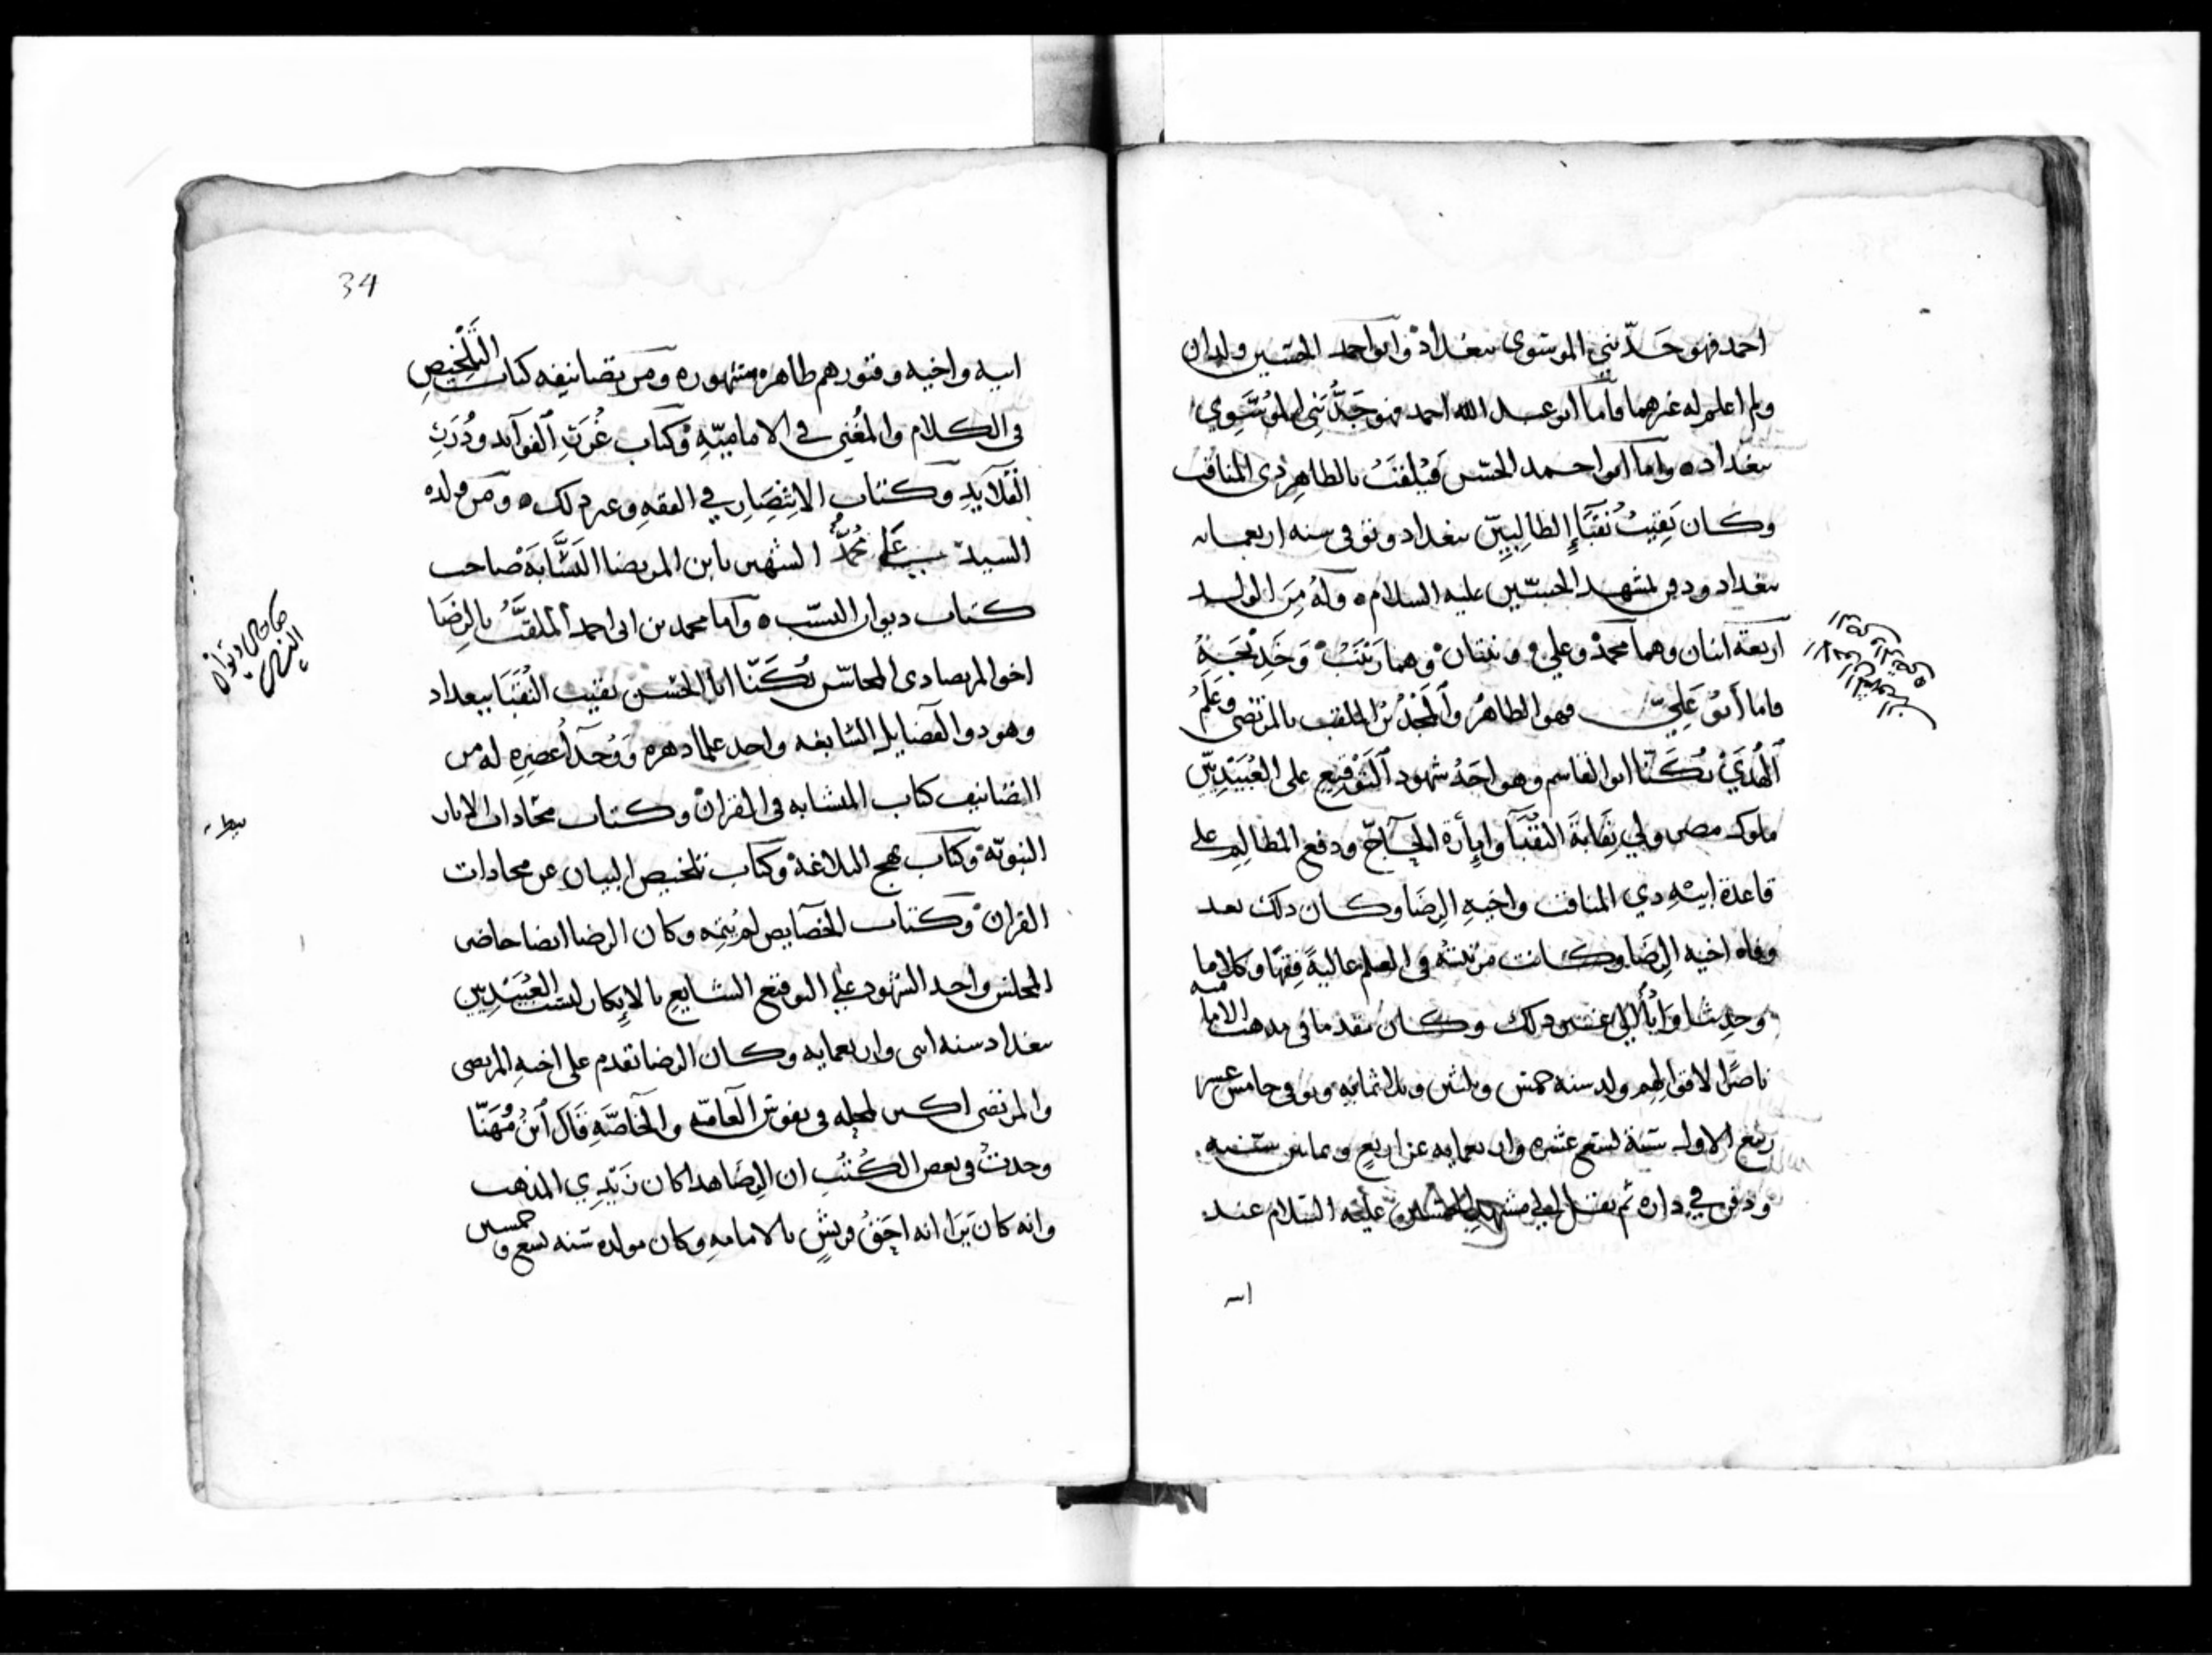 احمد فهو جَدّ بني الموسَوي ببغداد وابو احمد الحسين ولدان
ولم اعلم له غيرهما فاما ابو عبد الله احمد فهو جَدُّ بَنِي المُوسَوِي
ببغداد ه واما ابو احمد الحسين فيُلقبُ بالطاهر ذي المناقب
وكان نَقِيبُ نُقَبَآءِ الطالِبِيِّين ببغداد وتوفي سنه اربعمايه
ببغداد ودفن بمشهد الحسين عليه السلام ه وَلَهُ مِنَ الولد
اربعة ابنان وهما محمدٌ وعليٌ وبنتان وهما زينَبُ وَخَدِيْجَةُ
فاما أبُو عَلِيّ فهو الطاهرُ وٱلمَجْدَيْن الملقب بالمرتضى وعَلَمُ
ٱلهُدَىْ يُكَنّا ابو القاسم وهو احَدُ شهود ٱلتَوْقِيعِ على العُبَيْدِيّين
ملوك مصر ولي نِقَابَةَ النقَبَآ وإمأرة الحآجّ ودفع المظالِمِ على
قاعدة ابيْهِ ذي المناقب واخيهِ الرضَا وكان ذلك بعد
وفاه اخيه الرِضَا وكانت مرتبتُه في العلم عاليةً فِقهًا وكلاما
وحديثا الى غير ذلك وكان مقدما في مذهب الاماميه
ناصرًا لاقوالهِم ولد سنه خمس وثلثين وثلاثمائه وتوفي خامس عشر
ربيع الاول سَنة تسع عشره واربعمايه عن اربعٍ وثمانين سَنَه
ودفن في داره ثم نقل الى مشهد الحسين عليه السلام عند
ابيه
34
ابيه واخيه وقبورهم ظاهره مشهوره ومن تصانيفه كتاب التَلْخِيصِ
في الكلام والمُغْنِي في الاماميّهِ وكتاب غُرَرِ ٱلفوآئد ودُرَرِ
القَلآيدِ وكتاب الانتِصَارِ في الفقهِ وغير ذلك ه ومن ولده
السيد علي محمدٌ الشهير بابن المرتضا النسَّابَةَ صاحب
كتاب ديوان النسَب ه وأما محمد بن ابي احمد ٱلملقَّبُ بالرِضَا
اخو المرتضا ذي المحاسن يُكَنّا ابا الحسن نقيب النُقَبَا ببغداد
وهو ذو الفضايل الشايعه واحد علما دهره وَوُحَدآ عصرِهِ له من
التصانيف كتاب المتشابه في القران وكتاب مجازات الاثار
النبويّه وكتاب نهج البلاغة وكتاب تلخيص البيان عن مجازات
القران وكتاب الخصآيص لم يُتِمه وكان الرضا ايضا حاضر
المجلس واحد الشهود على التوقيع الشايع بالاِنكار لنسَب العُبَيْدِيين
ببغداد سنه اثنى واربعمايه وكان الرضا تقدم على اخيهِ المرتضى
والمرتضى اكبر لمحله في نفوس العآمّه والخآصّهِ قَالَ ٱبنُ مُهَنّا
وجدتُ في بعض الكُتُبِ ان الرِضَا هذا كان زَيْدِي المذهب
وانه كان يَرَا انه احَقُ قريشٍ بالامامهِ وكان مولده سَنه تسع وخمسين
صاحب ديوان
النسب